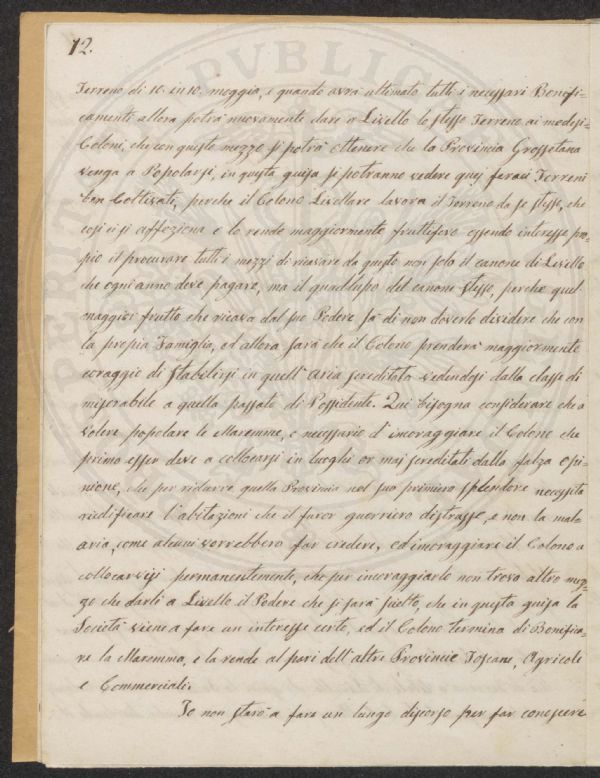 12.
Terreno di 10. in 10. moggia, e quando avrà ultimato tutti i necessari Bonifi-
camenti allora potrà nuovamente dare a Livello lo stesso Terreno ai medesi-
Coloni, che con questo mezzo si potrà ottenere che la Provincia Grossetana
venga a Popolarsi, in questa guisa si potranno vedere quei feraci Terreni
ben Coltivati, perche il Colono Livellare lavora il Terreno da se stesso, che
così vi si affeziona e lo rende maggiormente fruttifero essendo interesse pro-
pio il procurare tutti i mezzi di ricavare da questo non solo il canone di Livello
che ogni anno deve pagare, ma il quadruplo del canone stesso, perche quel
maggior frutto che ricava dal suo Podere sà di non doverlo dividere che con
la propia Famiglia, ed allora sarà che il Colono prenderà maggiormente
coraggio di stabilirsi in quell'aria screditata vedendosi dalla classe di
miserabile a quella passato di Possidente. Qui bisogna considerare che a
volere popolare le Maremme, è necessario d'incoraggiare il Colono che
primo esser deve a collocarsi in luoghi or mai screditati dalla falza opi-
nione, che per ridurre quella Provincia nel suo primiero splendore necessita
riedificare l'abitazioni che il furor guerriero distrusse, e non la mal-
aria, come alcuni vorrebbero far credere, ed incoraggiare il Colono a
collocarvisi permanentemente, che per incoraggiarlo non trovo altro mez-
zo che darli a Livello il Podere che si sarà scelto, che in questa guisa la
Società viene a fare un interesse certo, ed il Colono termina di Bonifica-
re la Maremma, e la rende al pari dell'altre Provincie Toscane, Agricole
e Commerciali.
Io non starò a fare un lungo discorso per far conoscere
PVBLIC
PERIT